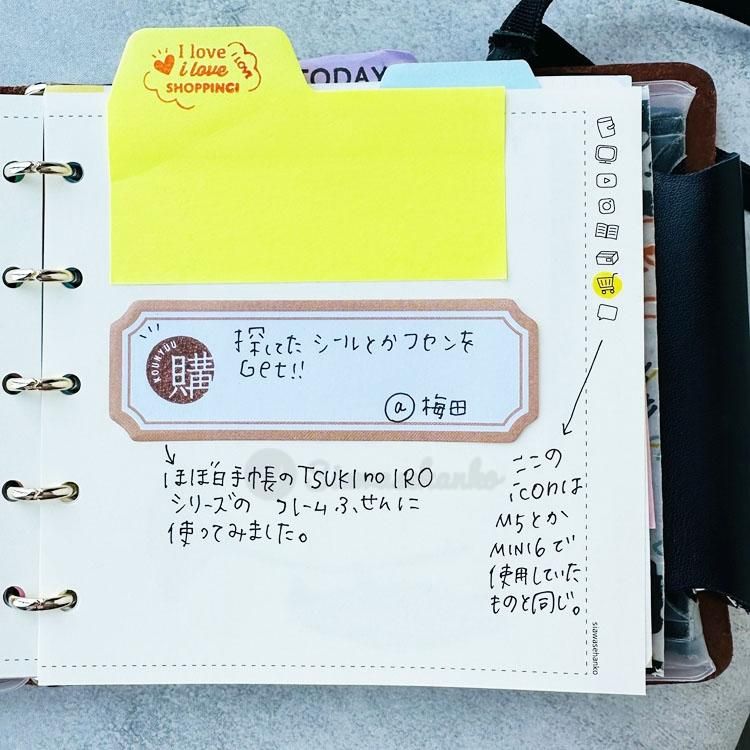 I love
i love
SHOPPING!
i love
TODAY
KOUNYUU
購
探してた シールとかフセンを
Get!!
@梅田
ほぼ日手帳のTSUKI no IRO
シリーズの フレームふせんに
使ってみました。
ここの
iconは
M5とか
MINI6で
使用していた
ものと同じ。
siawasehanko